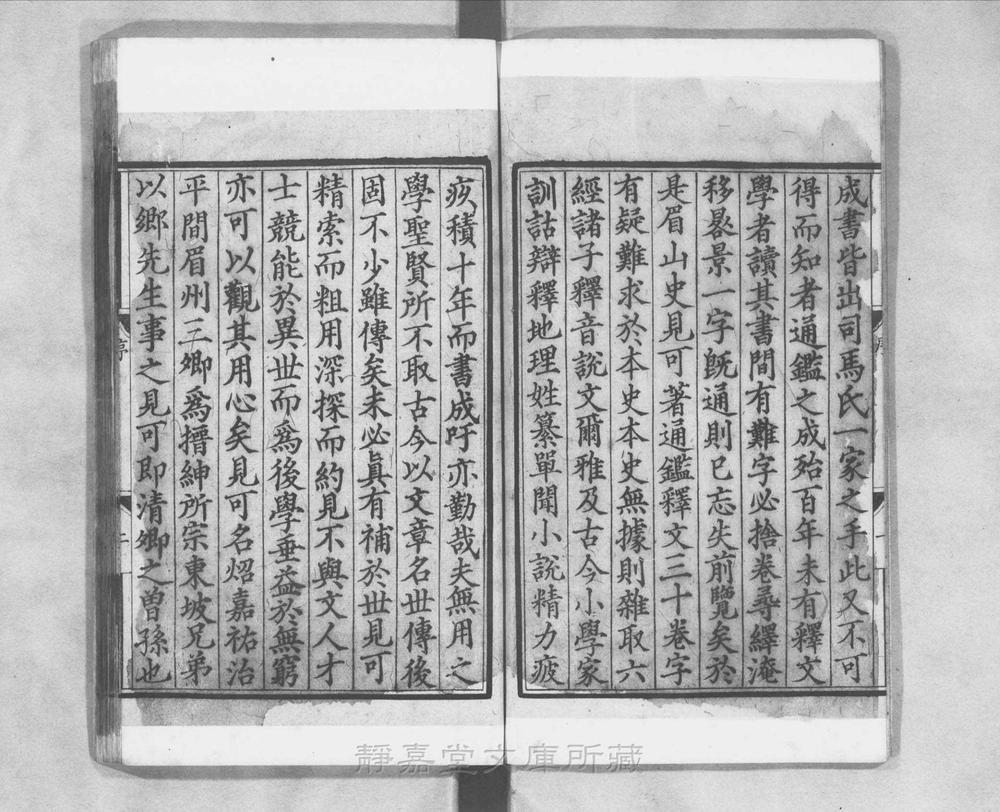 成書皆出司馬氏一家之手此又不可
得而知者通鑑之成殆百年未有釋文
學者讀其書間有難字必捨卷尋繹淹
移晷景一字旣通則已忘失前覽矣於
是眉山史見可著通鑑釋文三十卷字
有疑難求於本史本史無據則雜取六
經諸子釋音說文爾雅及古今小學家
訓詁辯釋地理姓纂單聞小說精力疲
疚積十年而書成吁亦勤哉夫無用之
學聖賢所不取古今以文章名世傳後
固不少雖傳矣未必眞有補於世見可
精索而粗用深探而約見不與文人才
士競能於異世而爲後學垂益於無窮
亦可以觀其用心矣見可名炤嘉祐治
平間眉州三卿爲搢紳所宗東坡兄弟
以鄉先生事之見可即清卿之曽孫也
序
二
靜嘉堂文庫所藏